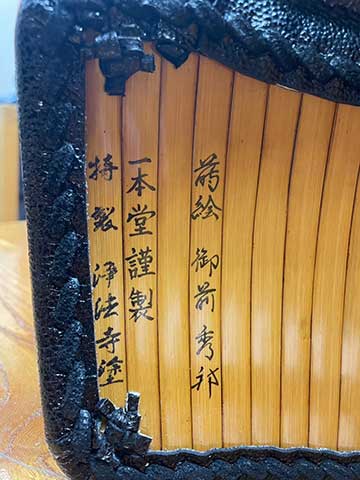 蒔絵 御前秀邦
一本堂謹製
特製 浄法寺塗